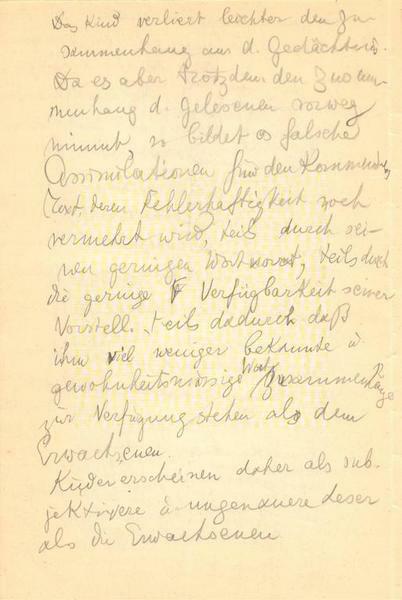 Das Kind verliert leichter den Zu-
sammenhang aus d. Gedächtnis.
Da es aber trotzdem den Zusam-
menhang d. gelesenen vorweg
nimmt, so bildet es falsche
Assimilationen für den kommenden
Text, deren Fehlerhaftigkeit noch
vermehrt wird, teils durch sei-
nen geringen Wortvorrat, teils durch
die geringe Verfügbarkeit seiner
Vorstell. teils dadurch daß
ihm viel weniger bekannte u
gewohnheitsmässige Wort Zusammenhänge
zur Verfügung stehen als dem
Erwachsenen.
Kinder erscheinen daher als sub-
jektivere u. ungenauere Leser
als die Erwachsenen.